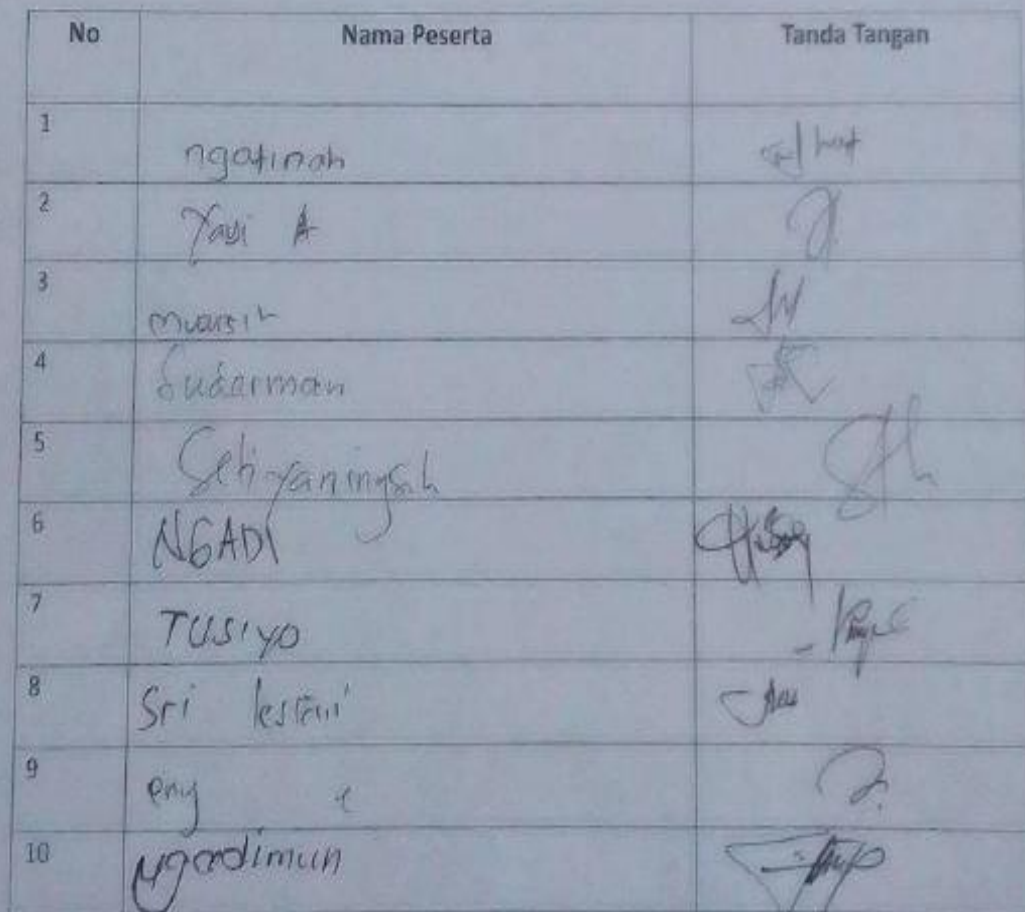 No Nama Peserta Tanda Tangan
1 ngatinah
2 Yasi A
3 muarsih
4 Sudarman
5 Setiyaningsih
6 NGADI
7 TUSIYO
8 Sri lestari
9 eny e
10 Ngadimun